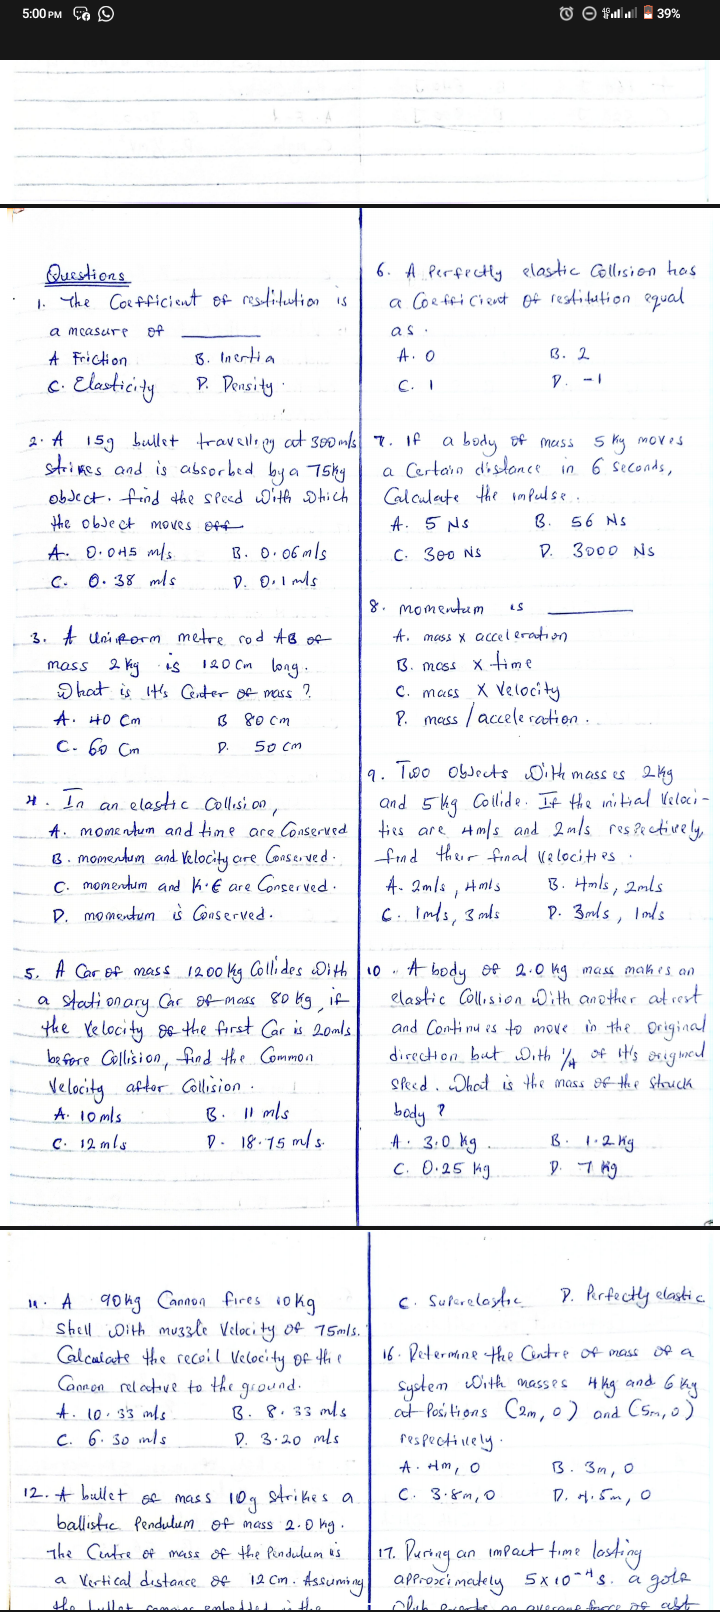 5:00 PM
4G
39%
Questions
1. The Coefficient of restitution is
a measure of ________
A Friction B. Inertia
C. Elasticity D. Density.
2. A 15g bullet travelling at 300m/s
strikes and is absorbed by a 75kg
object. find the speed with which
the object moves off
A. 0.045 m/s B. 0.06m/s
C. 0.38 m/s D. 0.1 m/s
3. A Uniform metre rod AB of
mass 2kg is 120cm long.
What is it's Center of mass?
A. 40 cm B 80 cm
C. 60 cm D. 50 cm
4. In an elastic Collision,
A. momentum and time are Conserved
B. momentum and Velocity are Conserved.
C. momentum and K.E are Conserved.
D. momentum is Conserved.
5. A Car of mass 1200kg Collides with
a stationary Car of mass 80kg, if
the Velocity of the first Car is 20m/s
before Collision, find the Common
Velocity after Collision.
A. 10m/s B. 11 m/s
C. 12m/s D. 18.75 m/s.
6. A Perfectly elastic Collision has
a Coefficient of restitution equal
as.
A. 0 B. 2
C. 1 D. -1
7. If a body of mass 5kg moves
a Certain distance in 6 seconds,
Calculate the impulse.
A. 5 Ns B. 56 Ns
C. 300 Ns D. 3000 Ns
8. momentum is ________
A. mass x acceleration
B. mass x time
C. mass x Velocity
D. mass/acceleration.
9. Two Objects with masses 2kg
and 5kg Collide. If the initial Veloci-
ties are 4m/s and 2m/s respectively,
find their final Velocities.
A. 2m/s, 4m/s B. 4m/s, 2m/s
C. 1m/s, 3m/s D. 3m/s, 1m/s
10. A body of 2.0kg mass makes an
elastic Collision with another at rest
and Continues to move in the Original
direction but with 1/4 of it's original
speed. What is the mass of the struck
body?
A. 3.0 kg. B. 1.2kg
C. 0.25 kg D. 7 kg
11. A 90kg Cannon fires 10kg
Shell with muzzle Velocity of 75m/s.
Calculate the recoil Velocity of the
Cannon relative to the ground.
A. 10.33 m/s B. 8.33 m/s
C. 6.30 m/s D. 3.20 m/s
12. A bullet of mass 10g strikes a
ballistic Pendulum of mass 2.0kg.
The Centre of mass of the Pendulum is
a Vertical distance of 12cm. Assuming
the bullet remains embedded in the
C. Superelastic D. Perfectly elastic
16. Determine the Centre of mass of a
system with masses 4kg and 6kg
at Positions (2m, 0) and (5m, 0)
respectively.
A. 4m, 0 B. 3m, 0
C. 3.8m, 0 D. 4.5m, 0
17. During an impact time lasting
approximately 5x10⁻⁴s. a golf
Club exerts an average force of